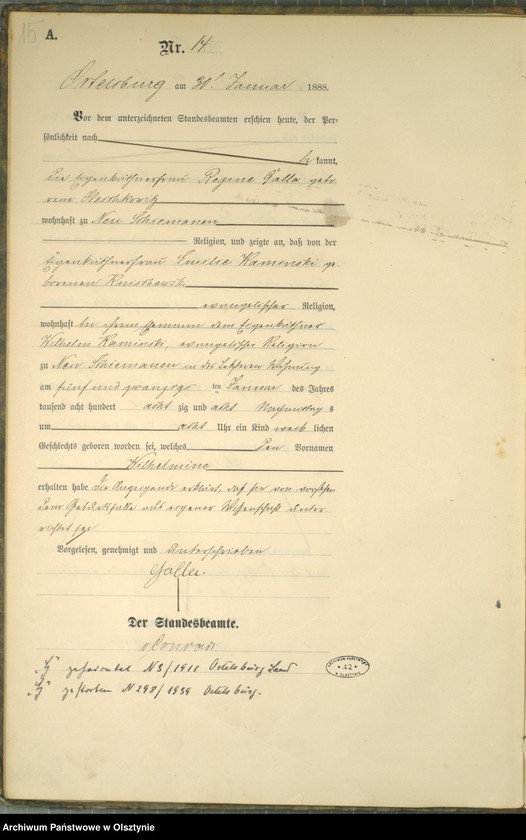 15 A.
Nr. 14
Ortelsburg am 30t Januar 1888.
Vor dem unterzeichneten Standesbeamten erschien heute, der Per-
sönlichkeit nach
be kannt,
die Eigenkäthnerfrau Regine Galla gebo
rene
wohnhaft zu Neu Schiemanen
Religion, und zeigte an, daß von der
Eigenkäthnerfrau Emilie Kaminski ge
borenen
evangelischer Religion,
wohnhaft bei ihrem Ehemann dem Eigenkäthner
Wilhelm Kaminski, evangelischer Religion
zu Neu Schiemanen in des Letzteren Wohnung
am fünf und zwanzigs ten Januar des Jahres
tausend acht hundert acht zig und acht Nachmittag s
um acht Uhr ein Kind weib lichen
Geschlechts geboren worden sei, welches den Vornamen
Wilhelmine
erhalten habe Die Anzeigende erklärt, daß sie von vorstehen
dem Geburtsfalle aus eigener Wissenschaft unter
richtet sei
Vorgelesen, genehmigt und unterschrieben
Galla.
Der Standesbeamte.
geheiratet N 3/1911 Ortelsburg Land
gestorben N 298/1939 Ortelsburg.
ARCHIWUM PAŃSTWOWE
* 42 *
W OLSZTYNIE
Archiwum Państwowe w Olsztynie